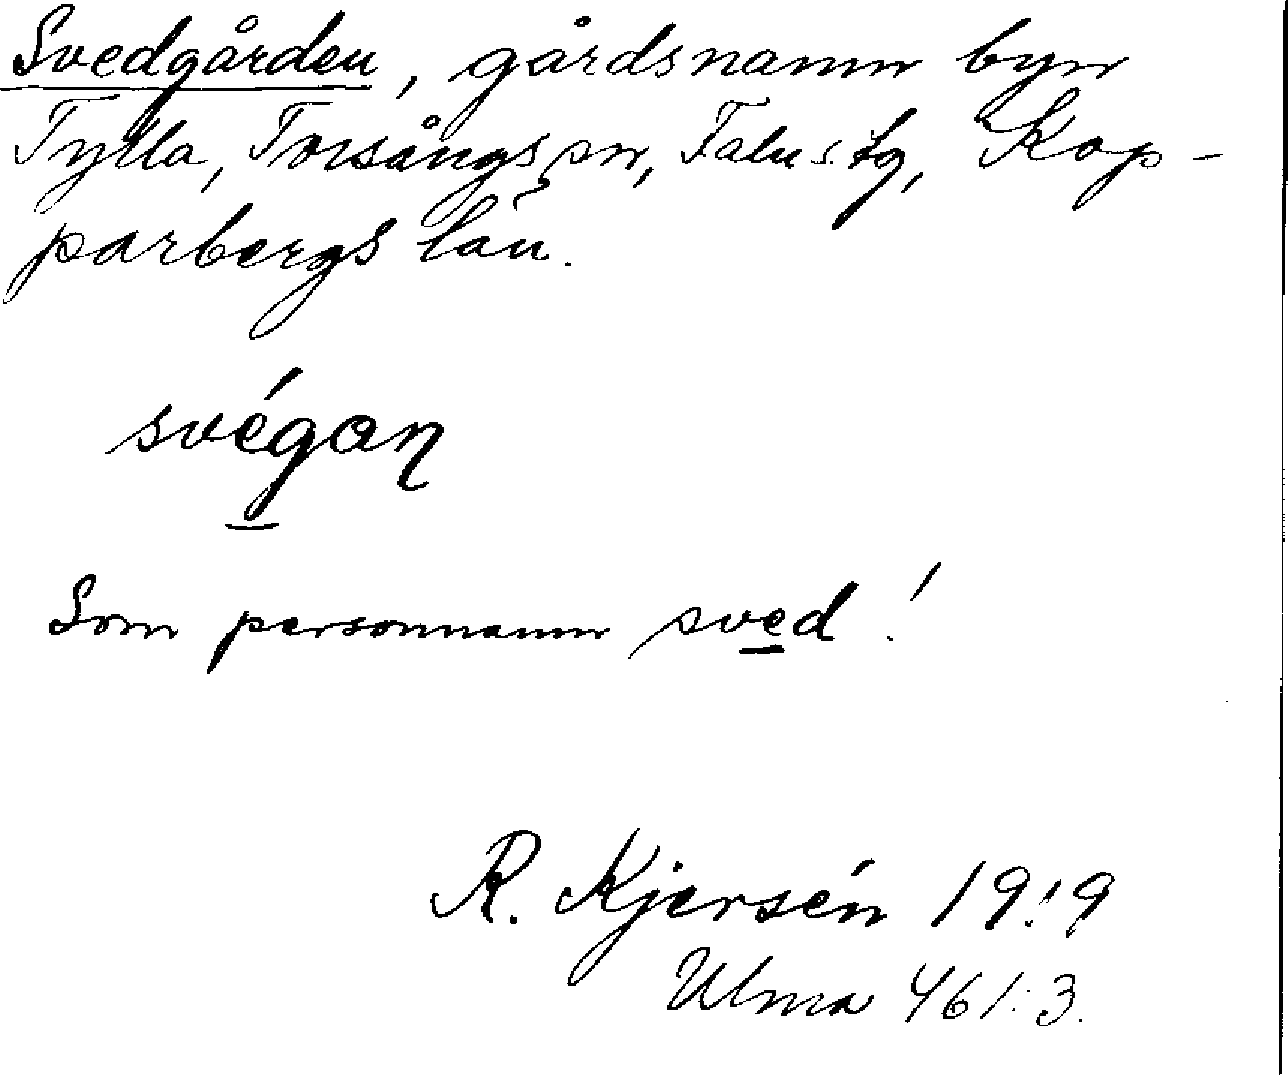 Svedgården, gårdsnamn byn
Tylla, Torsångs sn, Falu s. tg, Kop-
parbergs län.
svégaɳ
Som personnamn sved!
R. Kjersén 1919
Ulma 461:3.